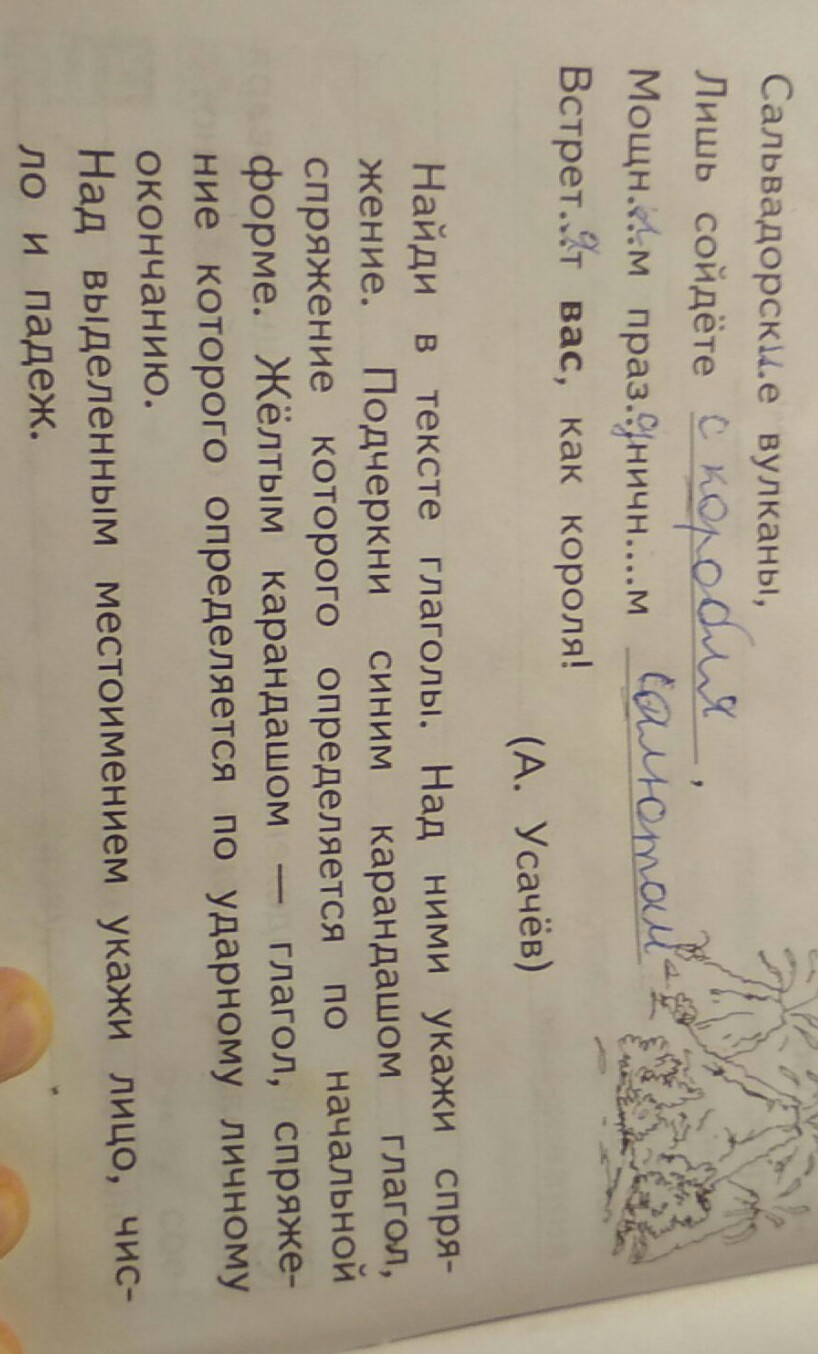 Сальвадорские вулканы,
Лишь сойдёте с корабля,
Мощн...ым праз..дничн....м салютом
Встрет...ят вас, как короля!
(А. Усачёв)
Найди в тексте глаголы. Над ними укажи спря-
жение. Подчеркни синим карандашом глагол,
спряжение которого определяется по начальной
форме. Жёлтым карандашом — глагол, спряже-
ние которого определяется по ударному личному
окончанию.
Над выделенным местоимением укажи лицо, чис-
ло и падеж.